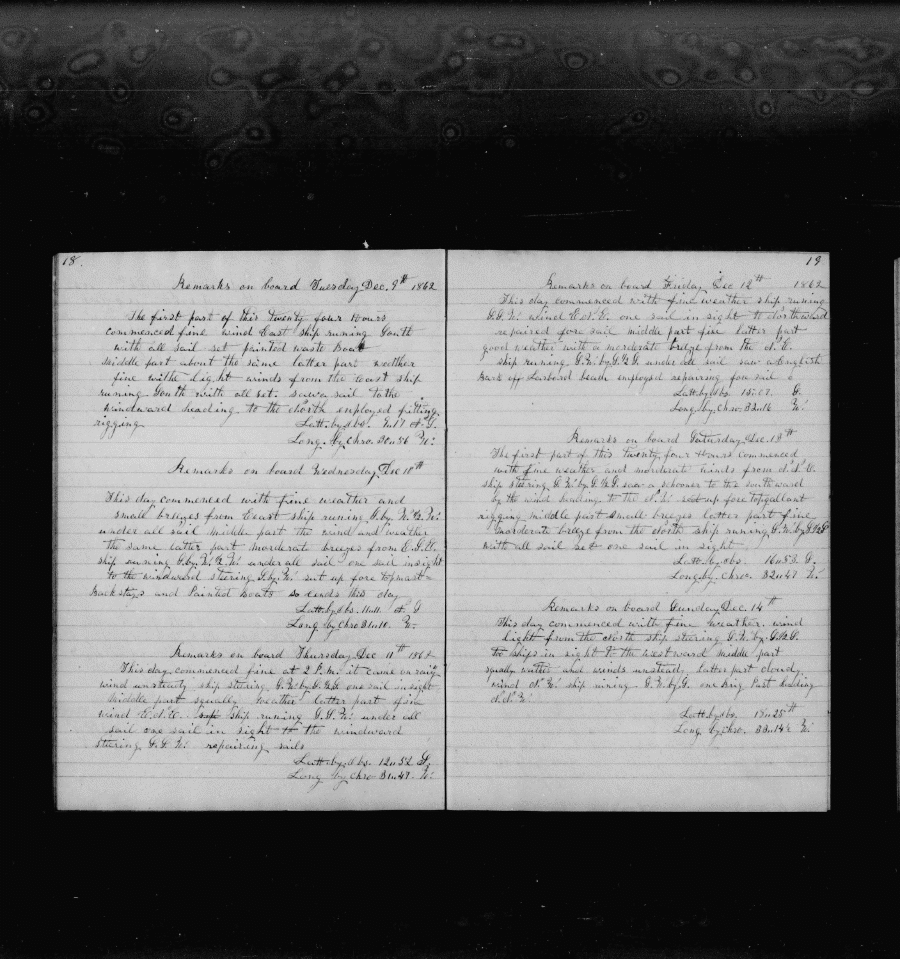 18.
Remarks on board Tuesday Dec. 9th 1862
The first part of this twenty four Hours
commenced fine wind East ship runing South
with all sail set painted waste Boat
Middle part about the same latter part wether
fine withe light winds from the East ship
runing South with all set. saw a sail to the
windward heading to the North employed fitting
rigging Latt. by Obs. 11 S.
Long. by Chro. 30 56 W.
Remarks on board Wednesday Dec 10th
This day commenced with fine weather and
small breezes from East ship runing S. by W. ½ W.
under all sail Middle part the wind and weather
the same latter part morderate breezes from E.S.E.
ship running S. by W. ½ W. under all sail one sail in sight
to the windward steering S. by W. sut up fore topmast
Backstays and Painted boats so ends this day
Latt. by Obs. 11 11 S
Long by Chro 31 10 W.
Remarks on board Thursday Dec 11th 1862
This day commenced fine at 2 P.M. it came on rainy
wind unsteady ship steering S.W. by S. ½ S one sail in sight
Middle part squally weather latter part fine
wind E.N.E. ship runing S.S.W. under all
sail one sail in sight to the windward
stering S.S.W. repairing sails
Latt. by Obs. 12 52 S.
Long by Chro 31 47 W.
19
Remarks on board Friday Dec 12th 1862
This day commenced with fine weather ship runing
S.S.W. wind E.N.E. one sail in sight to Northward
repaired fore sail middle part fine latter part
good weather with a morderate breeze from the N.E.
ship runing S.W. by S. ½ S under all sail saw a English
Bark off Larboard beam employed repairing fore sail
Latt. by Obs. 15 07 S.
Long. by Chro. 32 16 W.
Remarks on board Saturday Dec. 13th
The first part of this twenty four Hours commenced
with fine weather and morderate winds from N.N.E.
ship steering S.W. by S. ½ S saw a schooner to the southward
by the wind heading to the N.W. set up fore topgallant
rigging middle part small breezes latter part fine
morderate breeze from the North ship runing S.W. by S. ½ S
with all sail set one sail in sight
Latt. by Obs. 16 53 S.
Long by Chro. 32 47 W.
Remarks on board Sunday Dec. 14th
This day commenced with fine weather. wind
light from the North ship stering S.W. by S. ½ S.
two ships in sight to the westward middle part
squaly wether and winds unsteady latter part cloudy
wind N.W. ship runing S.W. by S. one Brig Past heading
N.N.W.
Latt. by Obs. 18 25 th
Long by Chro. 33 14 W.